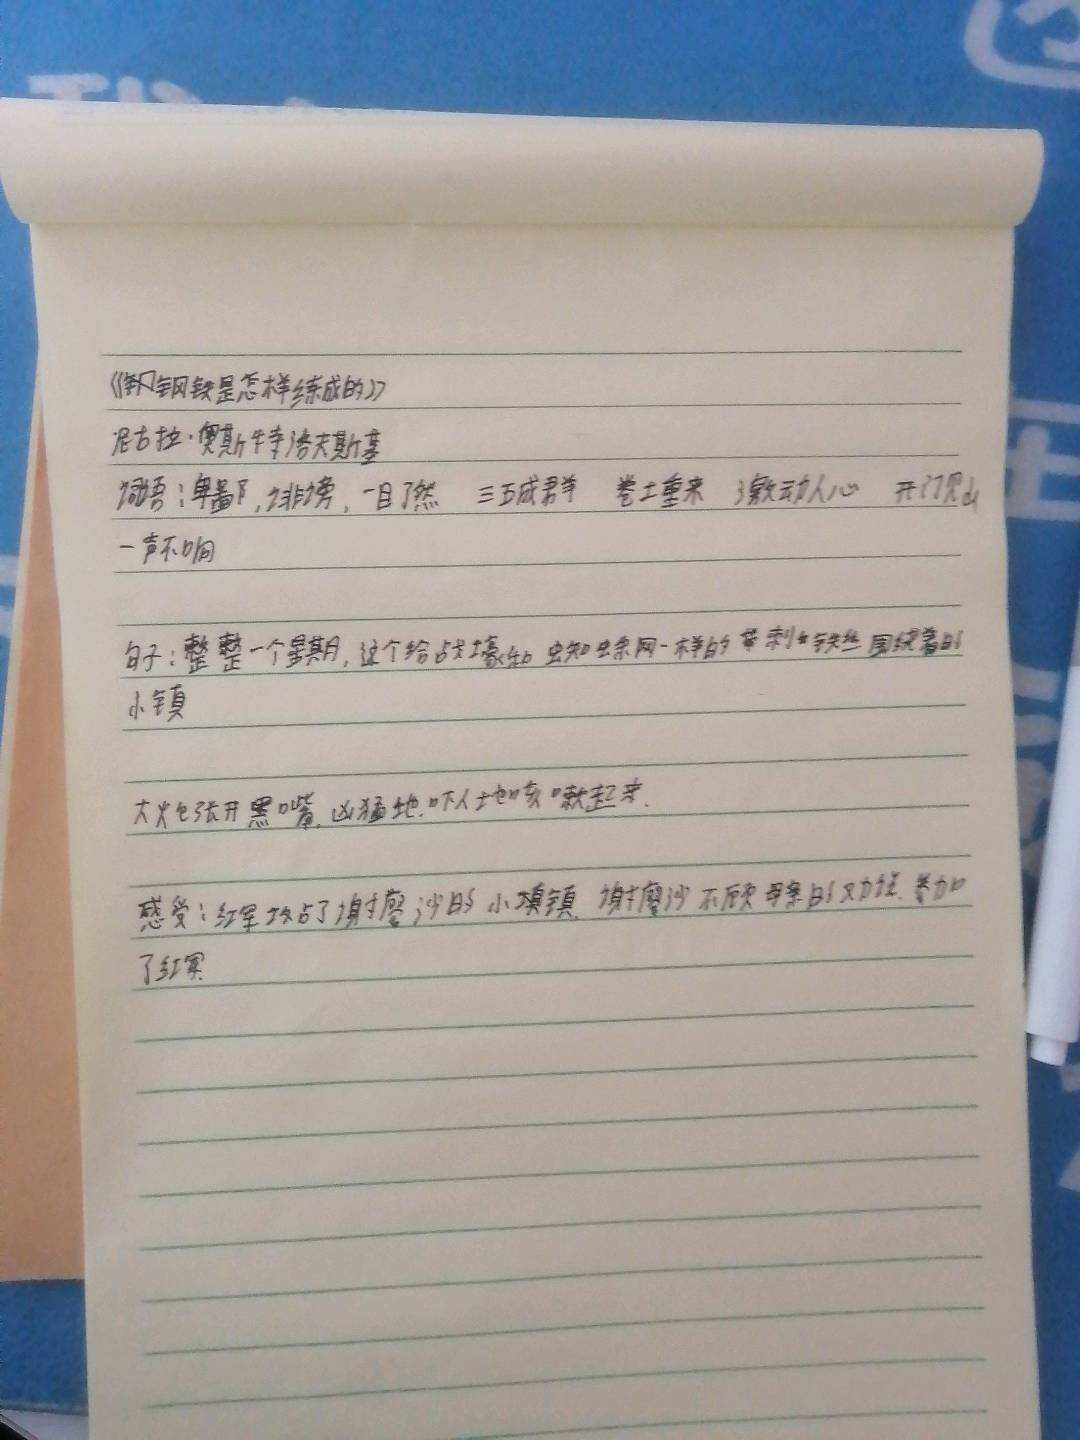 《钢铁是怎样练成的》
尼古拉·奥斯特洛夫斯基
词语:卑鄙,诽谤,一目了然 三五成群 卷土重来 激动人心 开门见山
一声不响
句子:整整一个星期,这个给战壕和蜘蛛网一样的带刺铁丝围绕着的
小镇
大炮张开黑嘴,凶猛地吓人地咳嗽起来.
感受:红军攻占了谢廖沙的小镇,谢廖沙不顾母亲的反对,参加
了红军